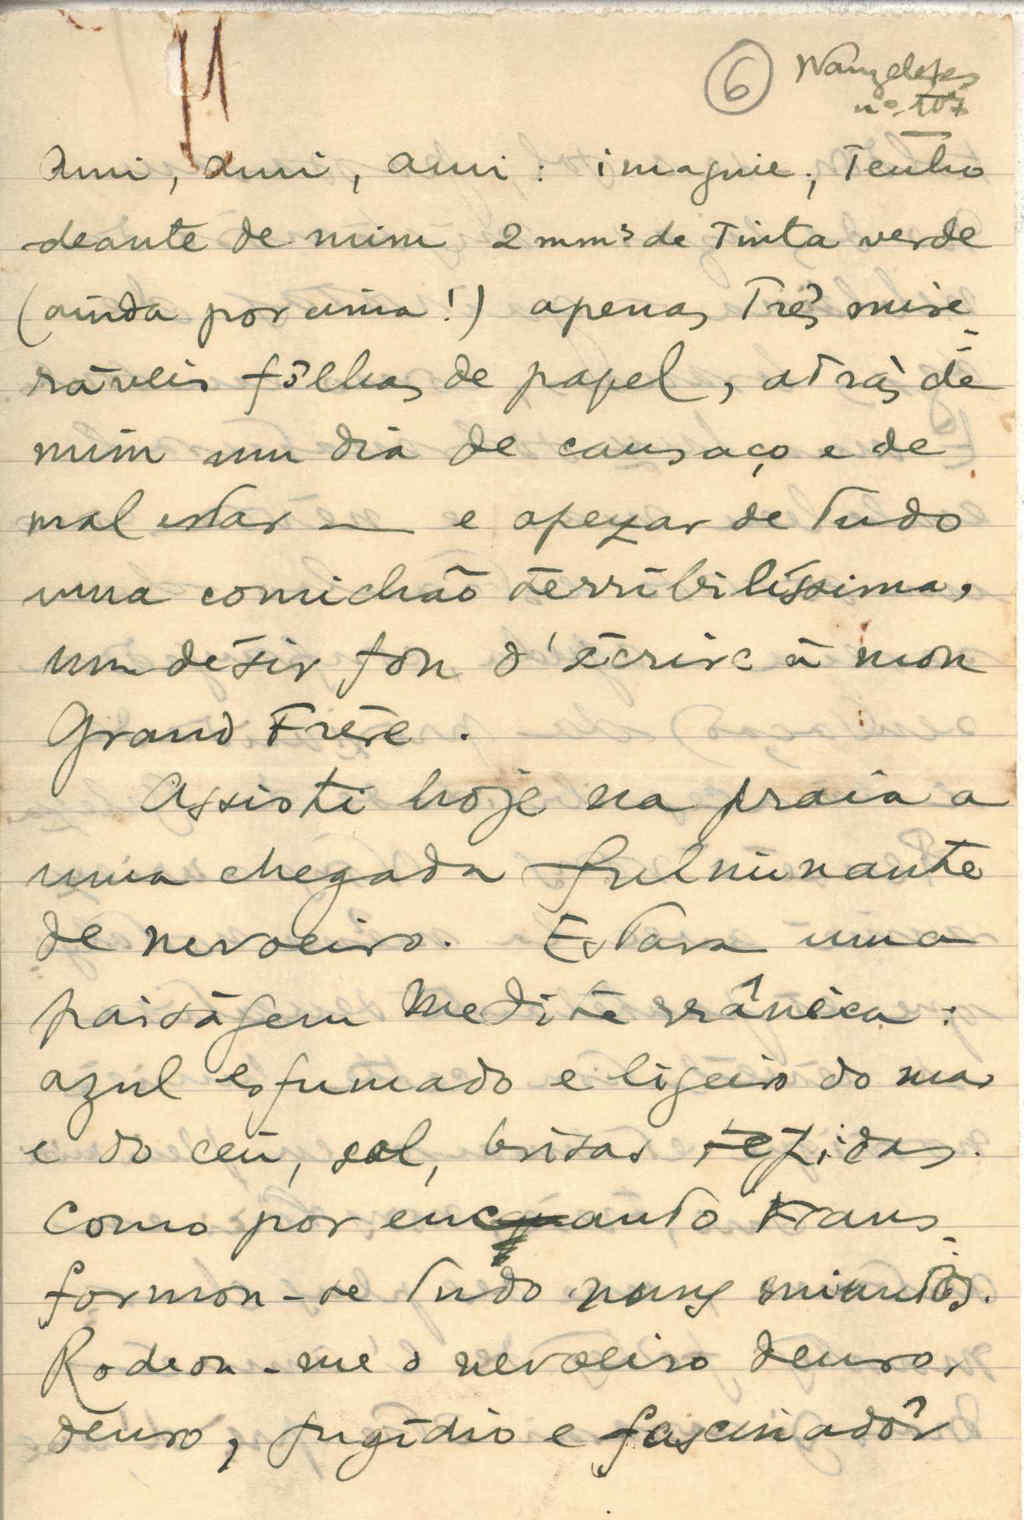 6
nº 107
Ami, ami, ami: imagine; Tenho
deante de mim 2 mm³ de Tinta verde
(ainda por cima!) apenas Três mise-
ráveis fôlhas de papel, atrás de
mim um dia de cansaço e de
mal estar — e apezar de Tudo
uma comichão terribilíssima,
um désir fou d'écrire à mon
Grand Frère.
Assisti hoje na praia a
uma chegada fulminante
de nevoeiro. Estava uma
paisagem Mediterrânica:
azul esfumado e ligeiro do mar
e do céu, sol, brisas tépidas.
Como por encanto Trans-
formou-se Tudo nuns minutos.
Rodeou-me o nevoeiro denso,
denso, fugídio e fascinadôr